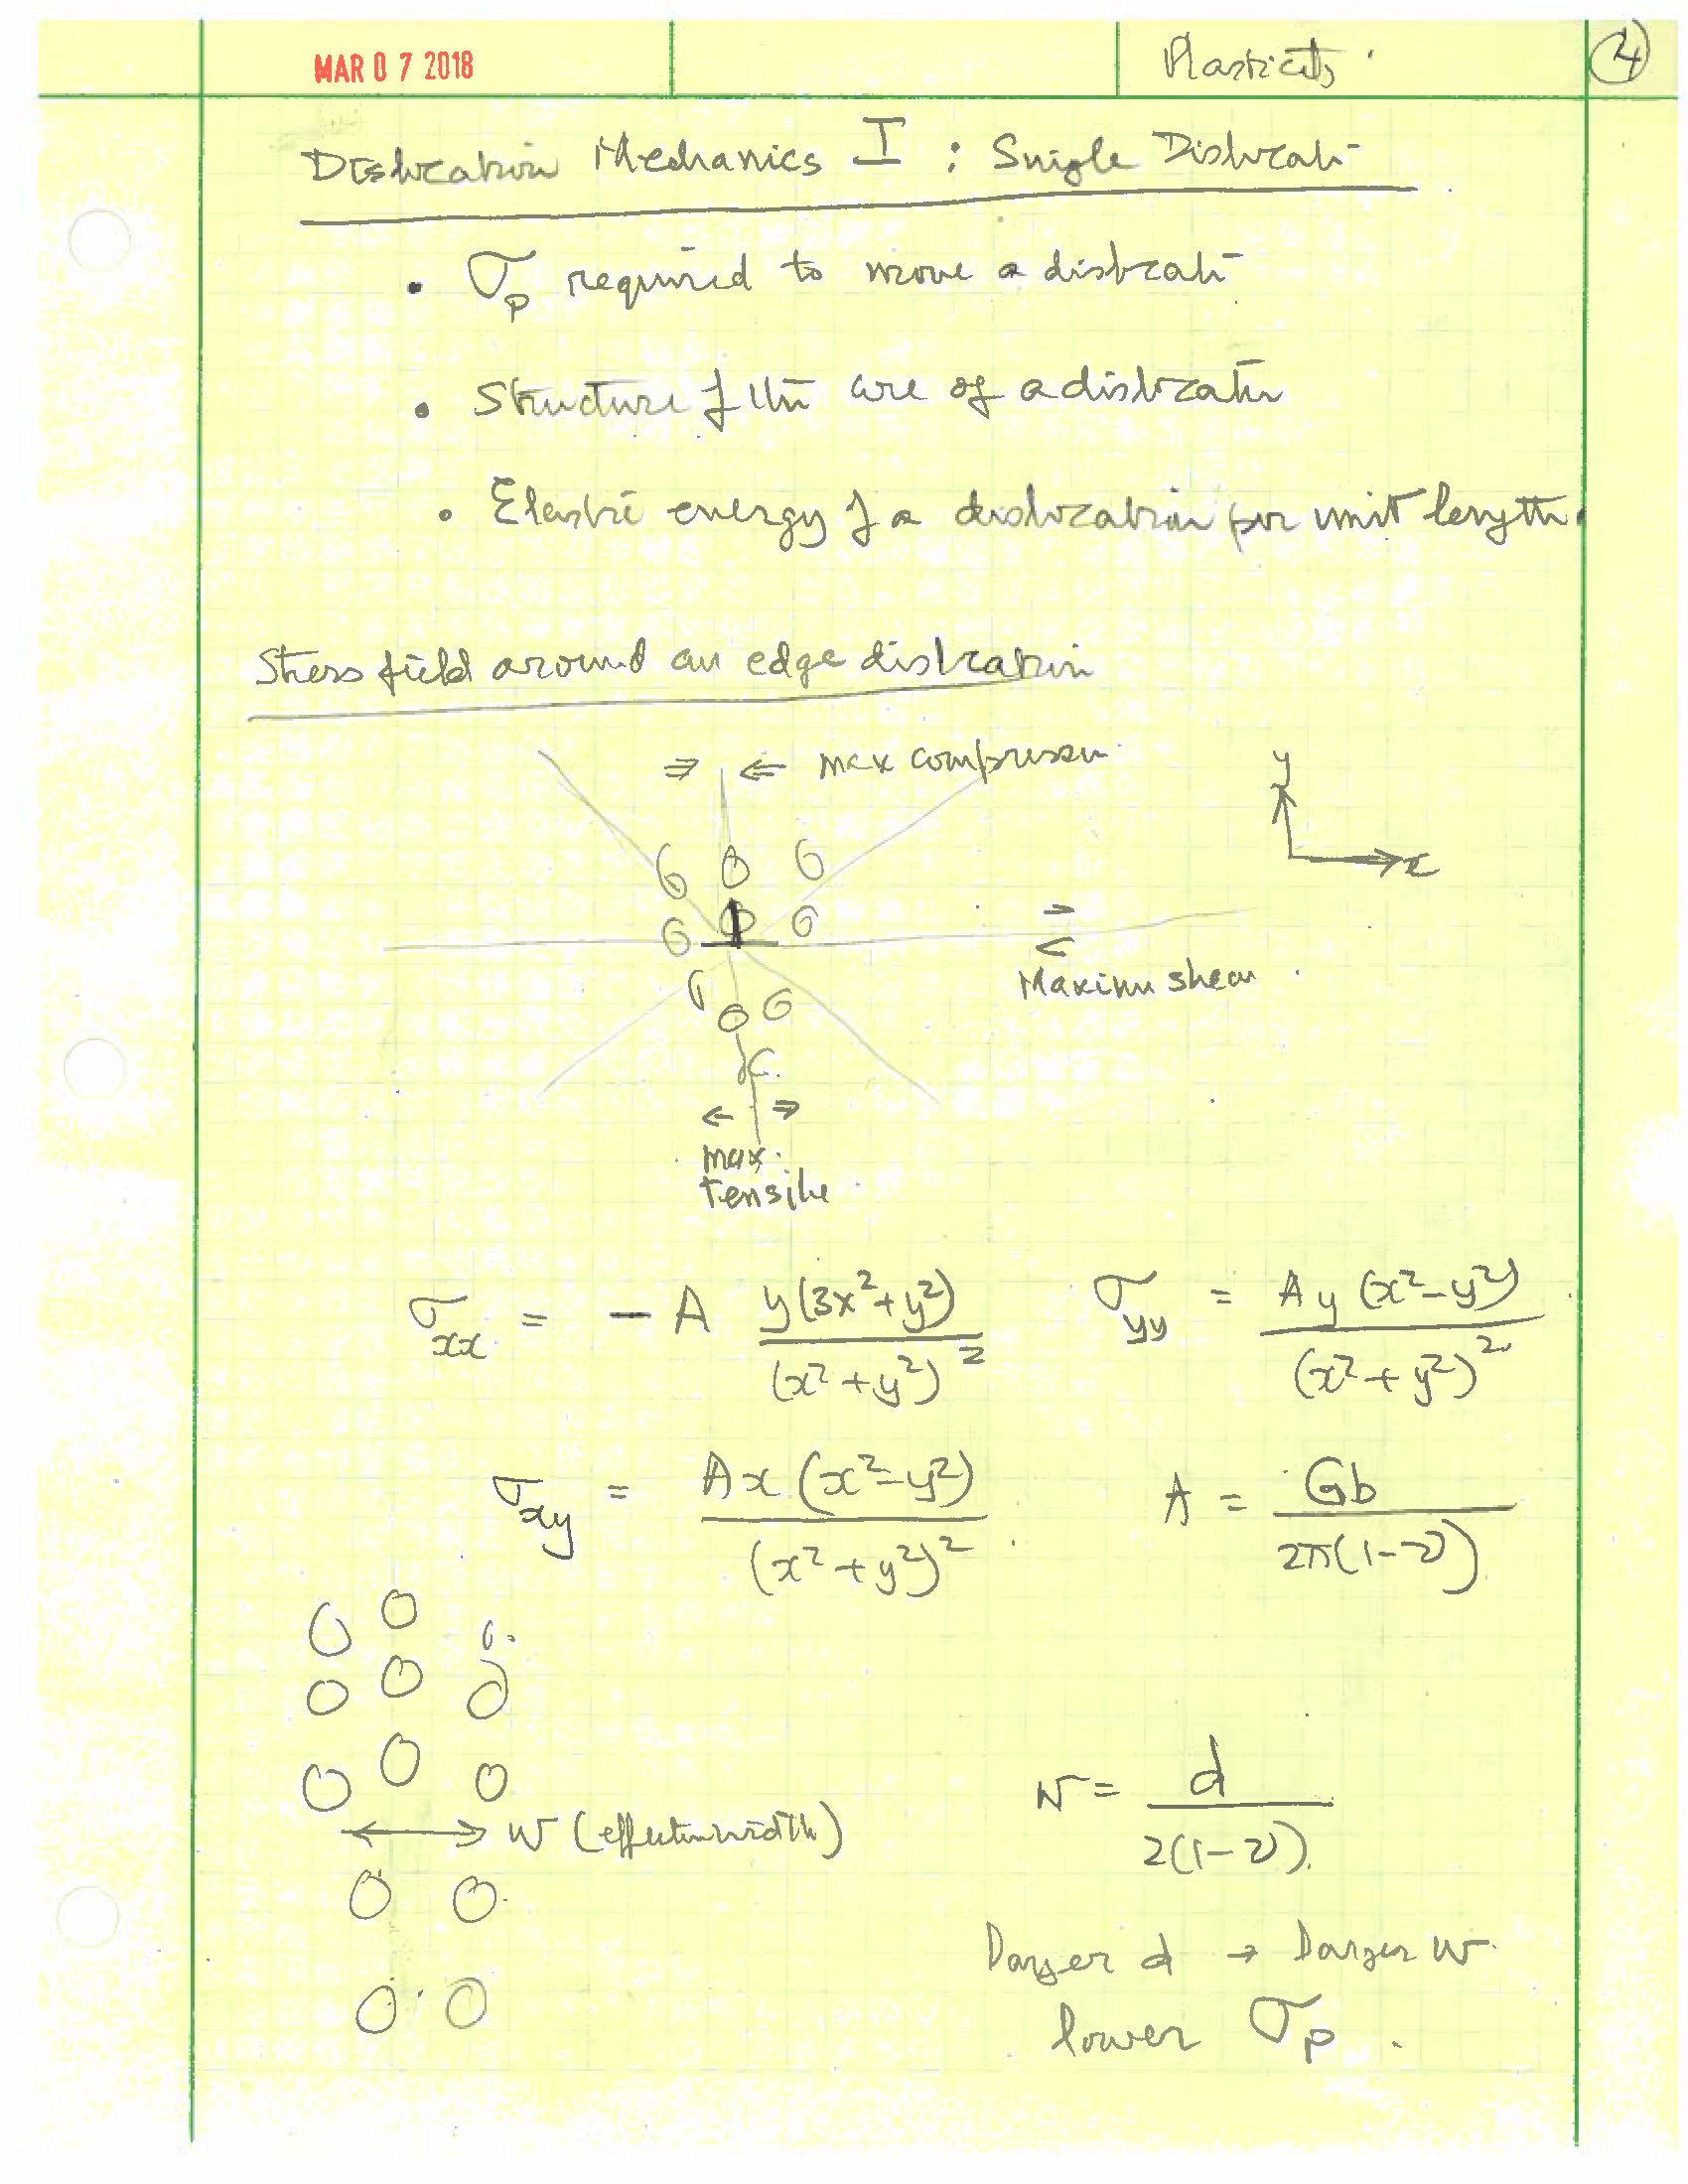 MAR 07 2018 Plasticity 2
Dislocation Mechanics I : Single Dislocati
• σp required to move a dislocati
• Structure of the core of a dislocatn
• Elastic energy of a dislocation per unit length.
Stress field around an edge dislocation
⇒ ⇐ max compression
y
x
→
←
Maximum shear
← ⇒
max.
tensile
σxx = − A y(3x²+y²) / (x²+y²)² σyy = Ay (x²−y²) / (x²+y²)²
σxy = Ax (x²−y²) / (x²+y²)² A = Gb / 2π(1−ν)
w = d / 2(1−ν)
↔ w (effective width)
Larger d → Larger w.
lower σp.